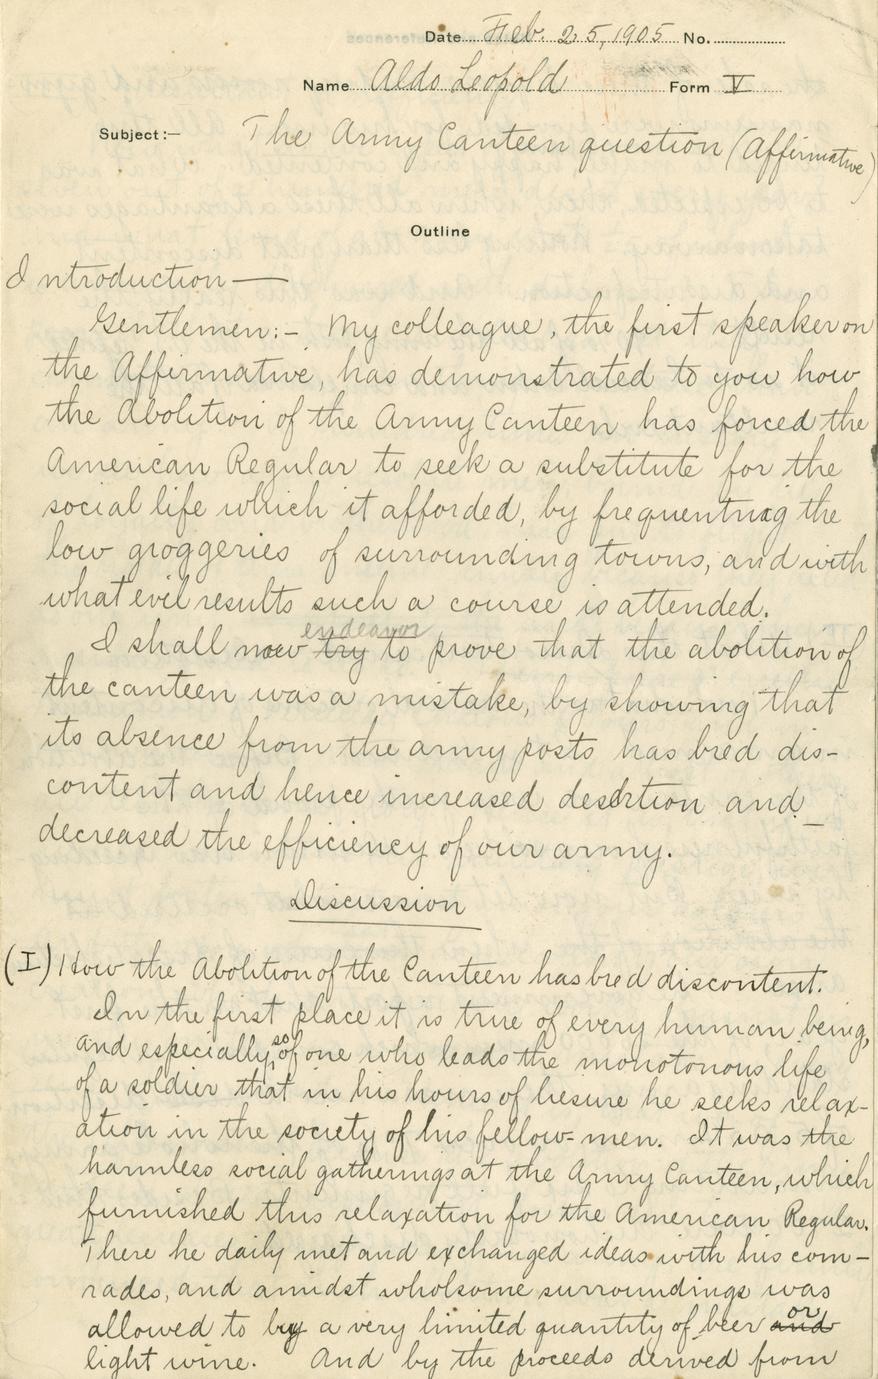 Date Feb. 25, 1905 No.
Name Aldo Leopold Form V
Subject:— The Army Canteen question (Affirmative)
Outline
Introduction —
Gentlemen:- My colleague, the first speaker on
the Affirmative, has demonstrated to you how
the Abolition of the Army Canteen has forced the
American Regular to seek a substitute for the
social life which it afforded, by frequenting the
low groggeries of surrounding towns, and with
what evil results such a course is attended.
endeavor
I shall now try to prove that the abolition of
the canteen was a mistake, by showing that
its absence from the army posts has bred dis-
content and hence increased desertion and
decreased the efficiency of our army.
Discussion
(I) How the Abolition of the Canteen has bred discontent.
In the first place it is true of every human being,
and especially so of one who leads the monotonous life
of a soldier that in his hours of liesure he seeks relax-
ation in the society of his fellow-men. It was the
harmless social gatherings at the Army Canteen, which
furnished this relaxation for the American Regular.
There he daily met and exchanged ideas with his com-
rades, and amidst wholsome surroundings was
allowed to buy a very limited quantity of beer and or
light wine. And by the proceeds derived from